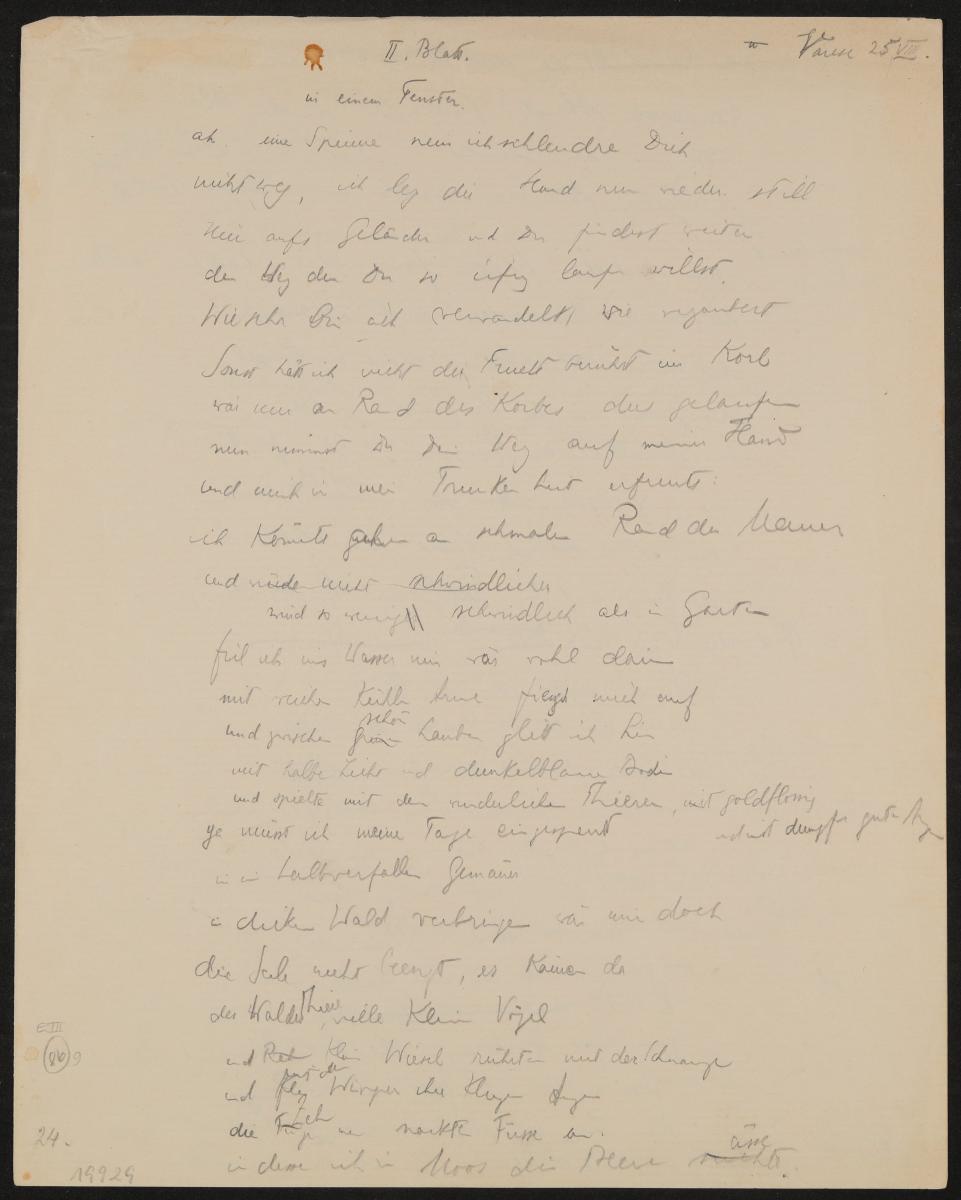 II. Blatt.
Varese 25 VIII.
in einem Fenster.
ah eine Spinne nein ich schleudre Dich
nicht weg, ich leg die Hand nun wieder still
hier aufs Geländer und Du findest weiter
den Weg den Du so eifrig laufen willst.
Wie sehr bin ich verwandelt, wie verzaubert
Sonst hätt ich nicht die Frucht berührt im Korb
wär nur am Rand des Korbes dies gelaufen
nun nimmst Du Dein Weg auf meiner Hand
und mich in meiner Trunkenheit erfreuts:
ich könnte gehen am schmalen Rand der Mauer
und würde nicht schwindlicher
würd so wenig schwindlich als im Garten
fiel ich ins Wasser mir wär wohl darin
mit weichen kühlen Armen fiengs mich auf
und zwischen schönen Lauben glitt ich hin
mit halbem Licht und dunkelblauem Boden
und spielte mit den wunderlichen Thieren, mit goldflossig
und mit dumpfen guten Augen
ja müsst ich meine Tage eingesperrt
in ein halbverfallen Gemäuer
im dicken Wald verbringen wär mir doch
die Seele nicht beengt, es kämen da
des Waldes Thiere, viele kleine Vögel
und kleine Wiesel rührten mit der Schnauze
und Wimper ihrer klugen Augen
die Zehen nackten Füsse an.
indess ich im Moos die Beeren ässe
E III
86 9
24.
19929